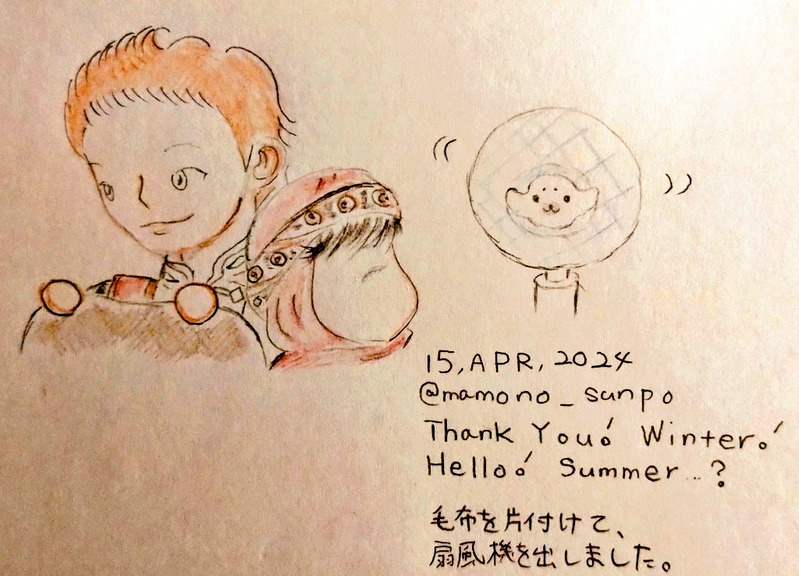 15, APR, 2024
@mamono_sanpo
Thank You! Winter!
Hello! Summer...?
毛布を片付けて、
扇風機を出しました。